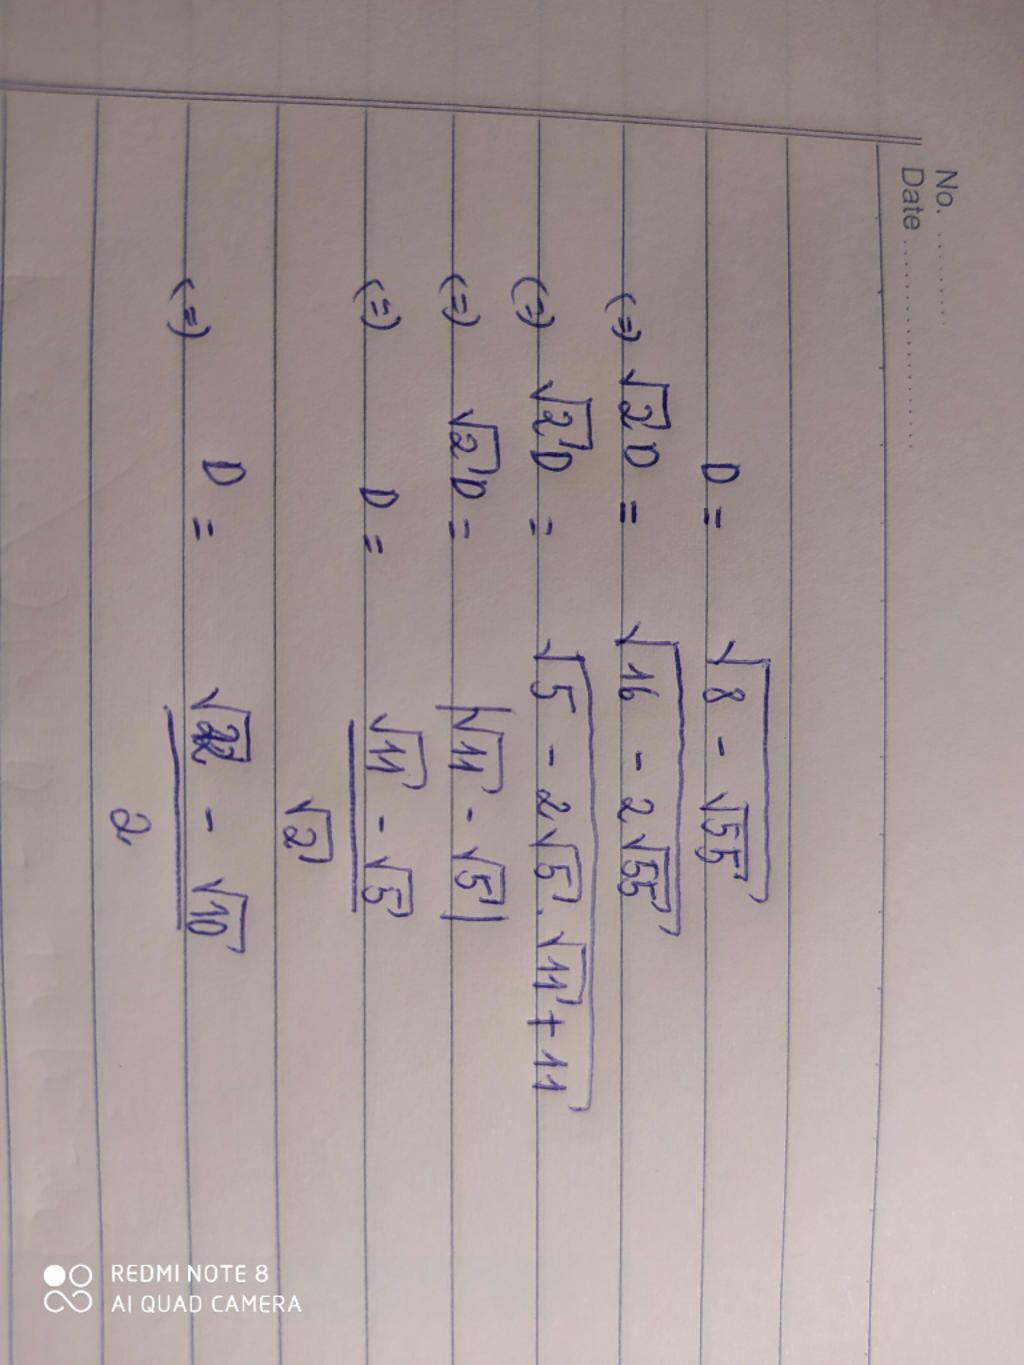 No. ..........
Date ......................
D = √(8 - √55)
(=) √2 D = √(16 - 2√55)
(=) √2 D = √(5 - 2√5 . √11 + 11)
(=) √2 D = |√11 - √5|
(=) D = (√11 - √5) / √2
(=) D = (√22 - √10) / 2
REDMI NOTE 8
AI QUAD CAMERA